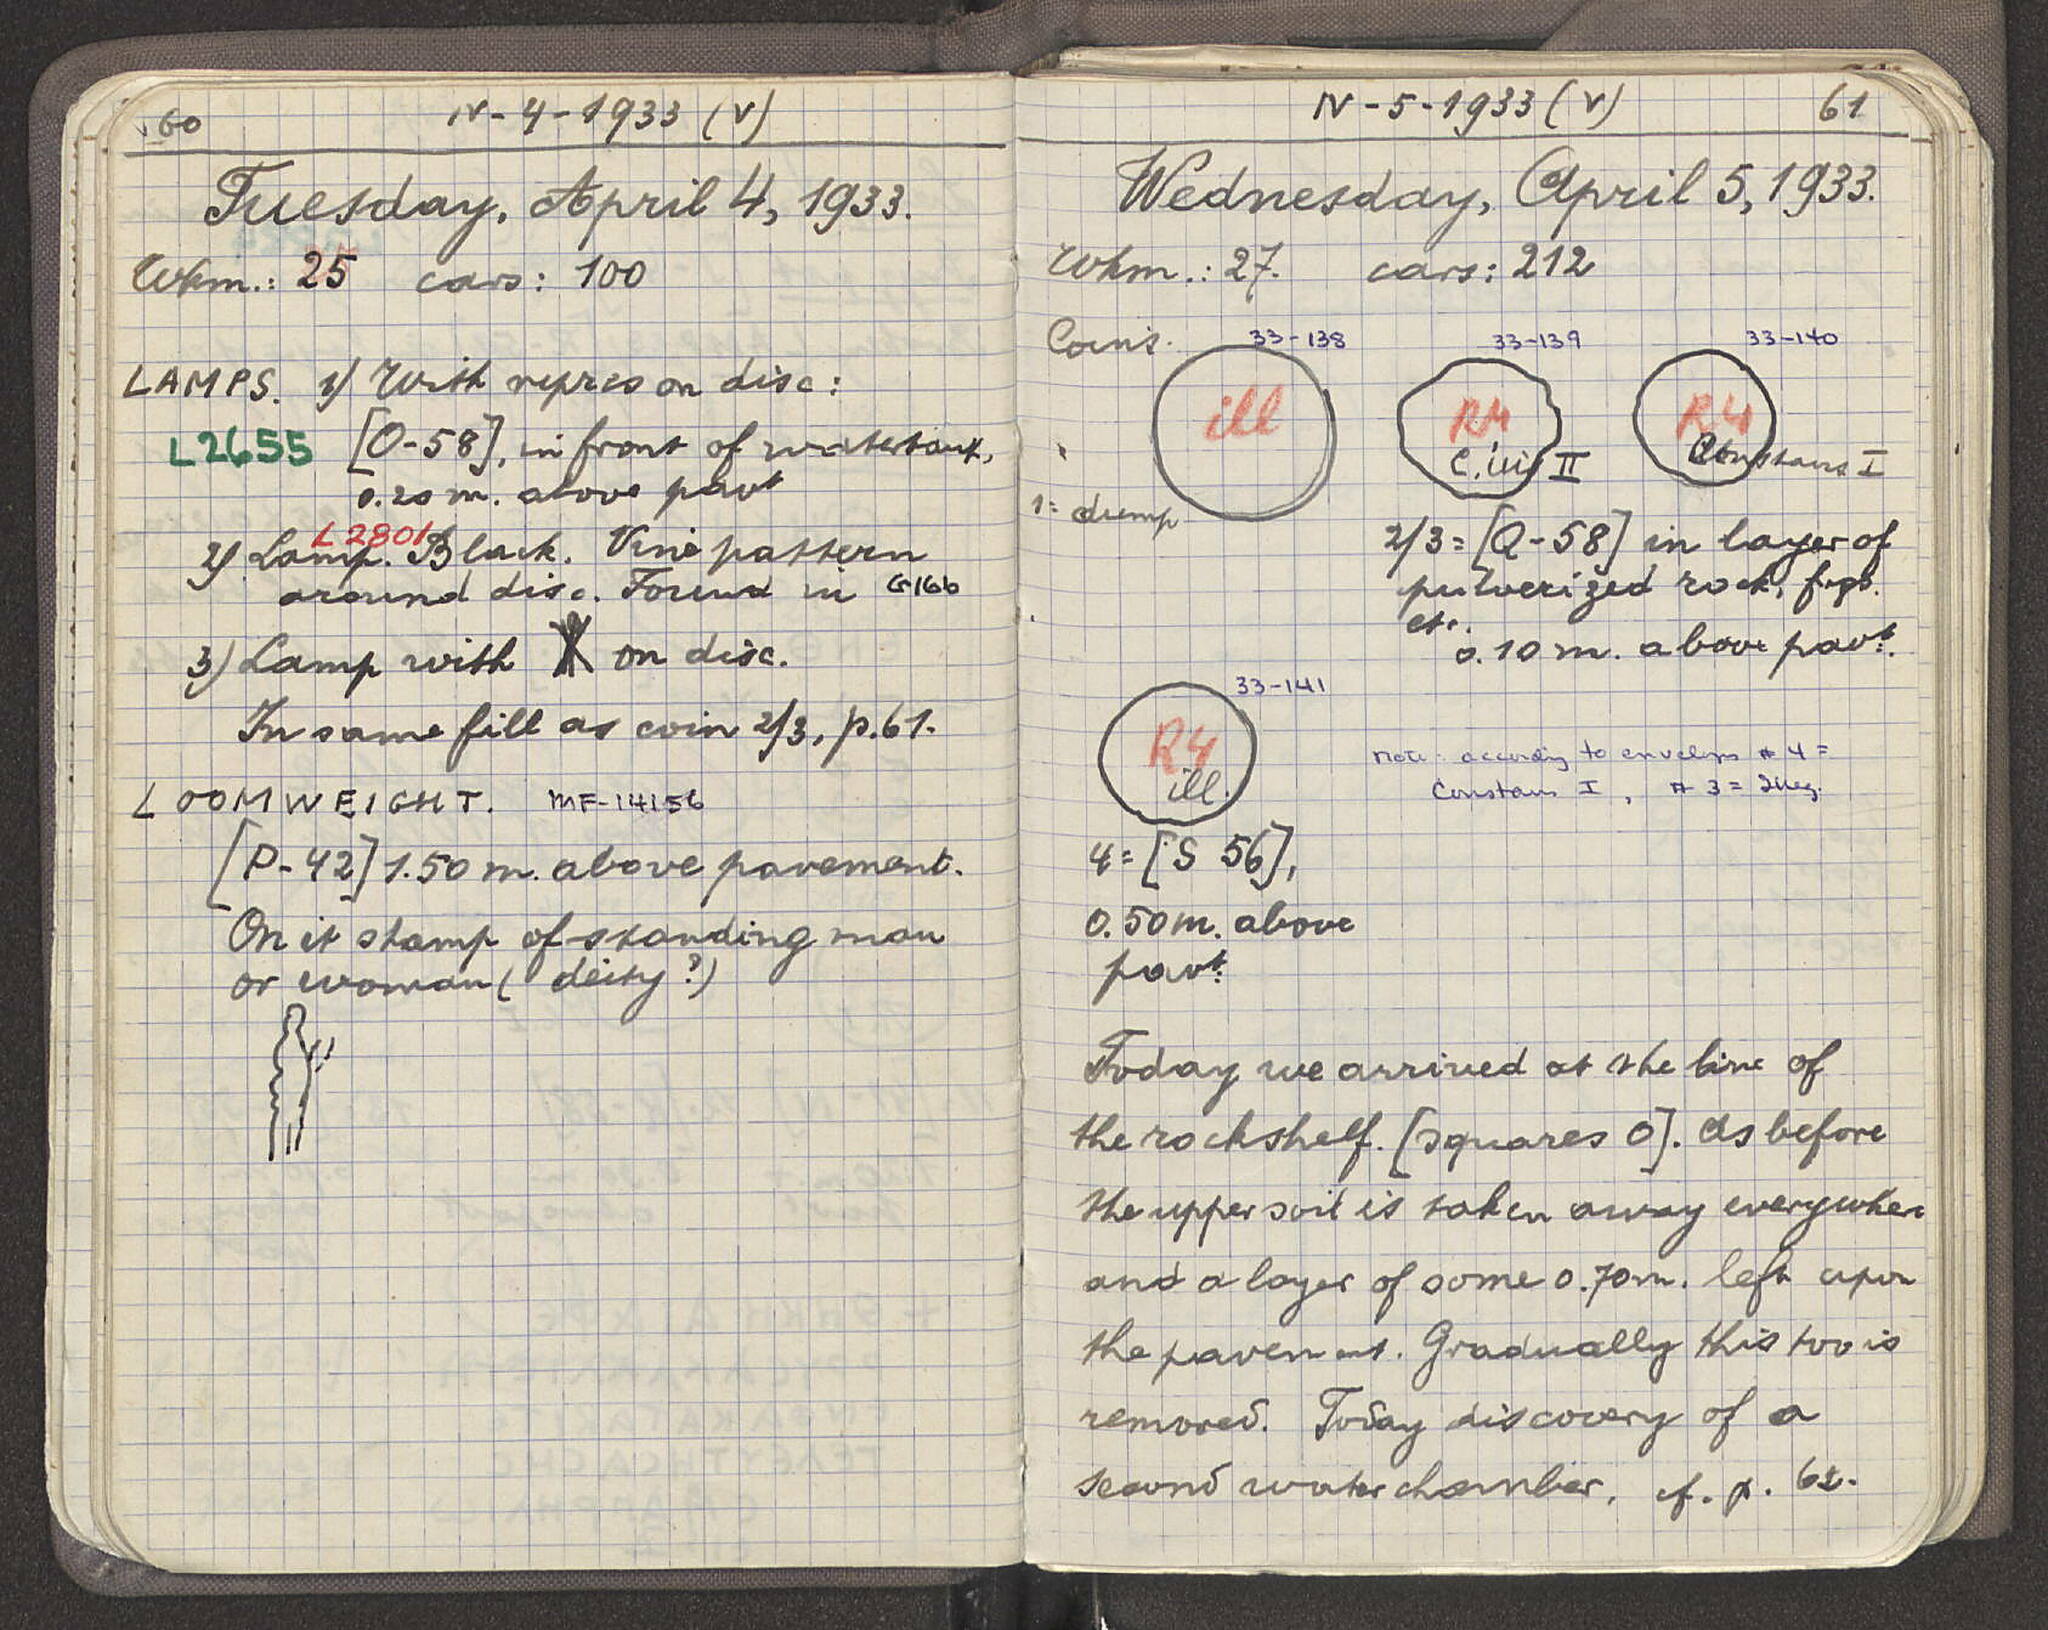 60
IV-4-1933 (V)
Tuesday, April 4, 1933.
Wkm.: 25 cars: 100
LAMPS. 1) With repres on disc:
L2655 [O-58], in front of watertank,
0.20 m. above pavt
L2801
2) Lamp. Black. Vine pattern
around disc. Found in G166
3) Lamp with on disc.
In same fill as coin 2/3, p.61.
LOOMWEIGHT. MF-14156
[P-42] 1.50 m. above pavement.
On it stamp of standing man
or woman (deity?)
IV-5-1933 (V) 61
Wednesday, April 5, 1933.
Wkm.: 27. cars: 212
Coins. 33-138 33-139 33-140
ill R4 R4
II Constans I
1= dump
2/3 = [Q-58] in layer of
pulverized rock, frgs.
etc.
0.10 m. above pavt.
33-141
R4
ill.
Note: according to envelops # 4 =
Constans I, # 3 = 2 illeg.
4 = [S 56],
0.50 m. above
pavt.
Today we arrived at the line of
the rockshelf. [squares O]. As before
the upper soil is taken away everywhere
and a layer of some 0.70 m. left upon
the pavement. Gradually this too is
removed. Today discovery of a
second water chamber, cf. p. 62.